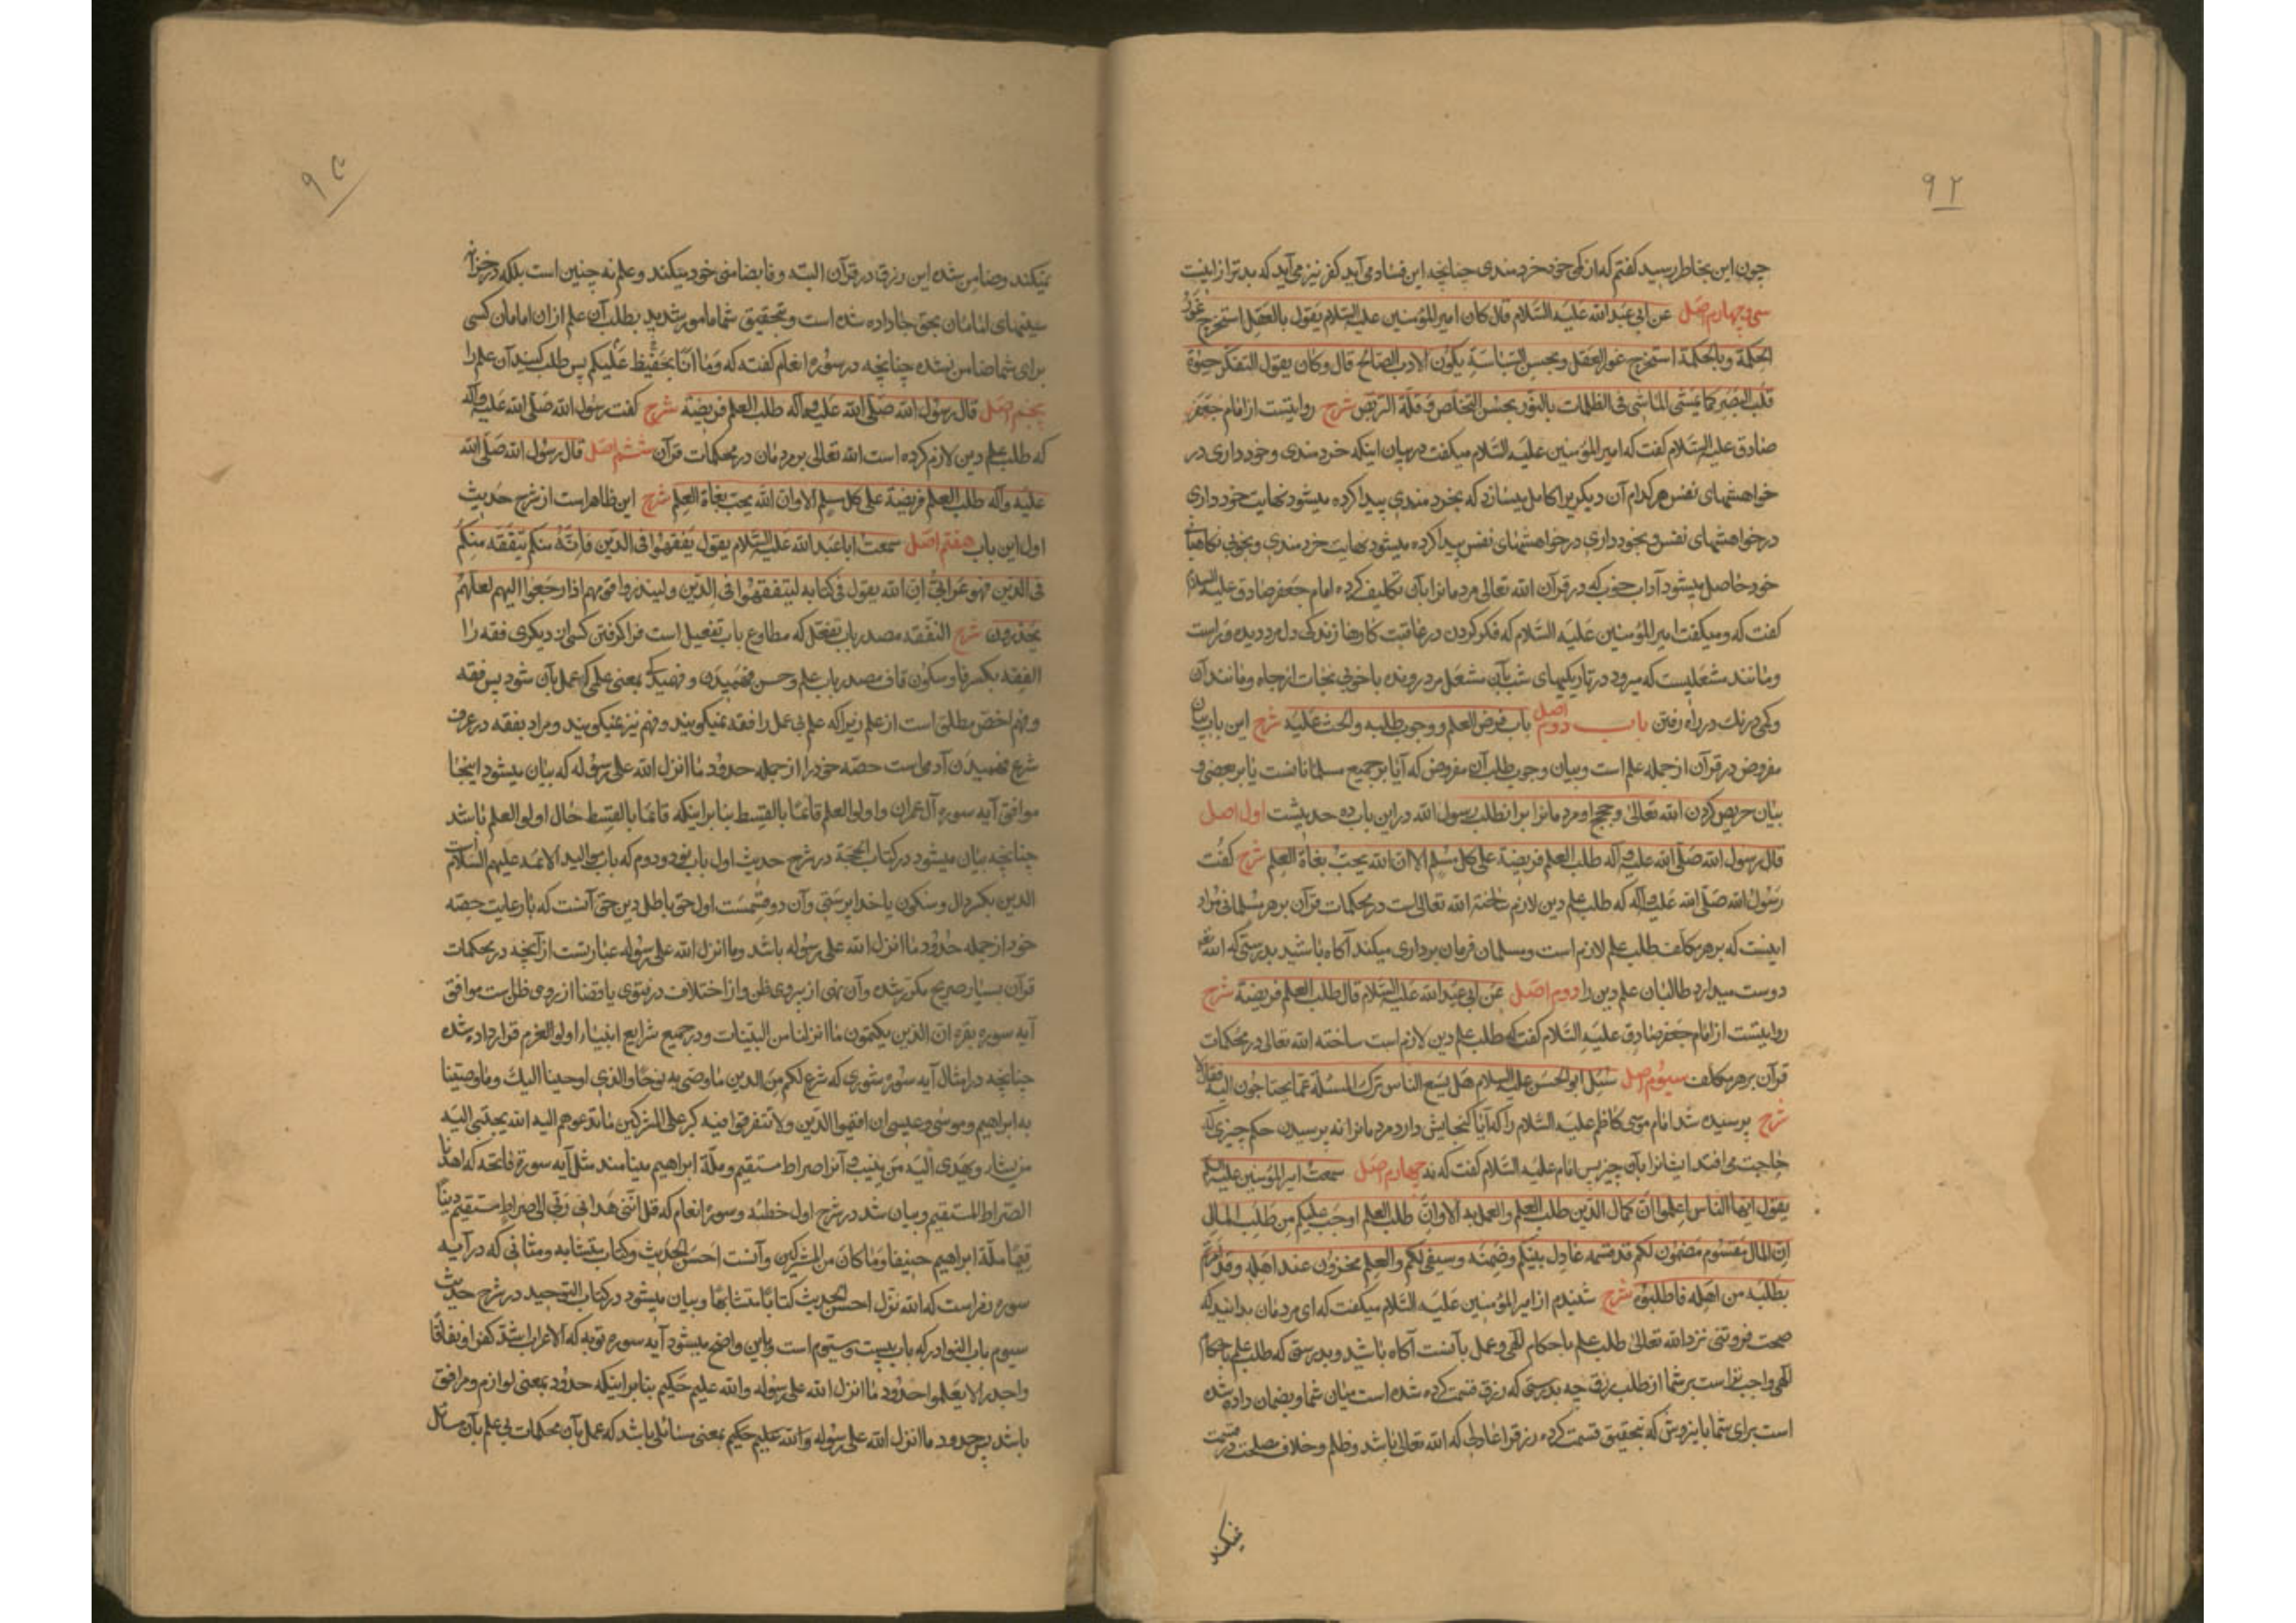 ۹۲
چون این بخاطر رسید کفتم که از کمی خود خردمندی چنانچه این فساد می آید کفر نیز می آید که بدتر از اینست
سی و چهارم اصل عن ابی عبد الله علیه السلام قال کان امیر المؤمنین علیه السلام یقول بالعقل استخرج غور
الحکمة وبالحکمة استخرج غور العقل وبحسن السیاسة یکون الادب الصالح قال وکان یقول التفکر حیوة
قلب البصیر کما یمشی الماشی فی الظلمات بالنور بحسن التخلص وقلة التربص شرح روایتست از امام جعفر
صادق علیه السلام کفت که امیر المؤمنین علیه السلام میکفت در بیان اینکه خردمندی وخودداری در
خواهشهای نفس هر کدام آن دیکریرا کامل میسازد که بخردمندی پیدا کرده میشود نهایت خودداری
در خواهشهای نفس وبخودداری در خواهشهای نفس پیدا کرده میشود نهایت خردمندی وبخوبی نکاهبانی
خود حاصل میشود آداب خوب که در قرآن الله تعالی مردمانرا بآن تکلیف کرده امام جعفر صادق علیه السلام
کفت که ومیکفت امیر المؤمنین علیه السلام که فکر کردن در عاقبت کارها زندکی دل مرد دیده وراست
ومانند مشعلیست که میرود در تاریکیهای شب بآن مشعل مرد رونده با خوبی نجات از چاه ومانند آن
وکمی درنك در راه رفتن باب دوم اصل باب فرض العلم ووجوب طلبه والحث علیه شرح این باب بیان
مفروض در قرآن از جمله علم است وبیان وجوب طلب آن مفروض که آیا بر جمیع مسلمانانست یا بر بعضی و
بیان حریص کردن الله تعالی وحجج او مردمانرا بر انطلب رسول الله در این باب ده حدیثست اول اصل
قال رسول الله صلی الله علیه وآله طلب العلم فریضة علی کل مسلم الا ان الله یحب بغاة العلم شرح کفت
رسول الله صلی الله علیه وآله که طلب علم دین لازم ساخته الله تعالی است در محکمات قرآن بر هر مسلمانی مراد
اینست که بر هر مکلف طلب علم لازم است ومسلمان فرمان برداری میکند آکاه باشید بدرستی که الله
دوست میدارد طالبان علم دین را دوم اصل عن ابی عبد الله علیه السلام قال طلب العلم فریضة شرح
روایتست از امام جعفر صادق علیه السلام کفت که طلب علم دین لازم است ساخته الله تعالی در محکمات
قرآن بر هر مکلف سیوم اصل سئل ابو الحسن علیه السلام هل یسع الناس ترك المسئلة عما یحتاجون الیه فقال لا
شرح پرسیده شد امام موسی کاظم علیه السلام را که آیا کنجایش دارد مردمانرا نه پرسیدن حکم چیزی که
حاجت می افتد ایشانرا بآن چیز پس امام علیه السلام کفت که نه چهارم اصل سمعت امیر المؤمنین علیه
یقول ایها الناس اعلموا ان کمال الدین طلب العلم والعمل به الا وان طلب العلم اوجب علیکم من طلب المال
ان المال مقسوم مضمون لکم قد قسمه عادل بینکم وضمنه وسیفی لکم والعلم مخزون عند اهله وقد امرتم
بطلبه من اهله فاطلبوه شرح شنیدم از امیر المؤمنین علیه السلام میکفت که ای مردمان بدانید که
صحت فروتنی نزد الله تعالی طلب علم باحکام الهی وعمل بآنست آکاه باشید وبدرستی که طلب علم باحکام
الهی واجب تر است بر شما از طلب رزق چه بدرستی که رزق قسمت کرده شده است میان شما وبضمان داده شده
است برای شما باین روش که بتحقیق قسمت کرده رزق را عادلی که الله تعالی باشد وظلم وخلاف مصلحت در قسمت
نمیکند
نمیکند وضامن شده این رزق در قرآن البته وفا بضامنی خود میکند وعلم نه چنین است بلکه در خزانه
سینهای امامان بحق جا داده شده است وبتحقیق شما مامور شدید بطلب آن علم از آن امامان کسی
برای شما ضامن نشده چنانچه در سوره انعام کفته که وما انا بحفیظ علیکم پس طلب کنید آن علم را
پنجم اصل قال رسول الله صلی الله علیه وآله طلب العلم فریضة شرح کفت رسول الله صلی الله علیه وآله
که طلب علم دین لازم کرده است الله تعالی بر مردمان در محکمات قرآن ششم اصل قال رسول الله صلی الله
علیه وآله طلب العلم فریضة علی کل مسلم الا وان الله یحب بغاة العلم شرح این ظاهر است از شرح حدیث
اول این باب هفتم اصل سمعت ابا عبد الله علیه السلام یقول تفقهوا فی الدین فانه من لم یتفقه منکم
فی الدین فهو اعرابی ان الله یقول فی کتابه لیتفقهوا فی الدین ولینذروا قومهم اذا رجعوا الیهم لعلهم
یحذرون شرح التفقه مصدر باب تفعل که مطاوع باب تفعیل است فرا کرفتن کسی از دیکری فقه را
الفقه بکسر فا وسکون قاف مصدر باب علم وحسن فهمیدن و بمعنی علمی که عمل بآن شود پس فقه
وفهم اخص مطلق است از علم زیرا که علم بی عمل را فقه نمیکویند وفهم نیز نمیکویند ومراد بفقه در عرف
شرع فهمیدن آدمی است حصه خود را از جمله حدود ما انزل الله علی رسوله که بیان میشود اینجا
موافق آیه سوره آل عمران واولوا العلم قائما بالقسط بنا بر اینکه قائما بالقسط حال اولو العلم باشد
چنانچه بیان میشود در کتاب الحجة در شرح حدیث اول باب نود ودوم که باب موالید الائمه علیهم السلام است
الدین بکسر دال وسکون یا خدا پرستی وآن دو قسمست اول حق باطل دین حق آنست که با رعایت حصه
خود از جمله حدود ما انزل الله علی رسوله باشد وما انزل الله علی رسوله عبارتست از آنچه در محکمات
قرآن بسیار صریح مکرر شده وآن نهی از پیروی ظن واز اختلاف در فتوی یا قضا از روی ظن است موافق
آیه سوره بقره ان الذین یکتمون ما انزلنا من البینات ودر جمیع شرایع انبیاء اولو العزم قرار داده شده
چنانچه در امثال آیه سوره شوری که شرع لکم من الدین ما وصی به نوحا والذی اوحینا الیك وما وصینا
به ابراهیم وموسی وعیسی ان اقیموا الدین ولا تتفرقوا فیه کبر علی المشرکین ما تدعوهم الیه الله یجتبی الیه
من یشاء ویهدی الیه من ینیب وآنرا صراط مستقیم وملة ابراهیم مینامند مثل آیه سورة فاتحه که اهدنا
الصراط المستقیم وبیان شد در شرح اول خطبه وسوره انعام که قل اننی هدانی ربی الی صراط مستقیم دینا
قیما ملة ابراهیم حنیفا وما کان من المشرکین وآنست احسن الحدیث وکتاب متشابه ومثانی که در آیه
سوره زمر است که الله نزل احسن الحدیث کتابا متشابها وبیان میشود در کتاب التوحید در شرح حدیث
سیوم باب النوادر که باب بیست وسیوم است وباین واضح میشود آیه سوره توبه که الاعراب اشد کفرا ونفاقا
واجدر الا یعلموا حدود ما انزل الله علی رسوله والله علیم حکیم بنا بر اینکه حدود بمعنی لوازم ومرافق
باشد پس حدود ما انزل الله علی رسوله والله علیم حکیم بمعنی مسائلی باشد که عمل بآن محکمات بی علم بآن مسائل